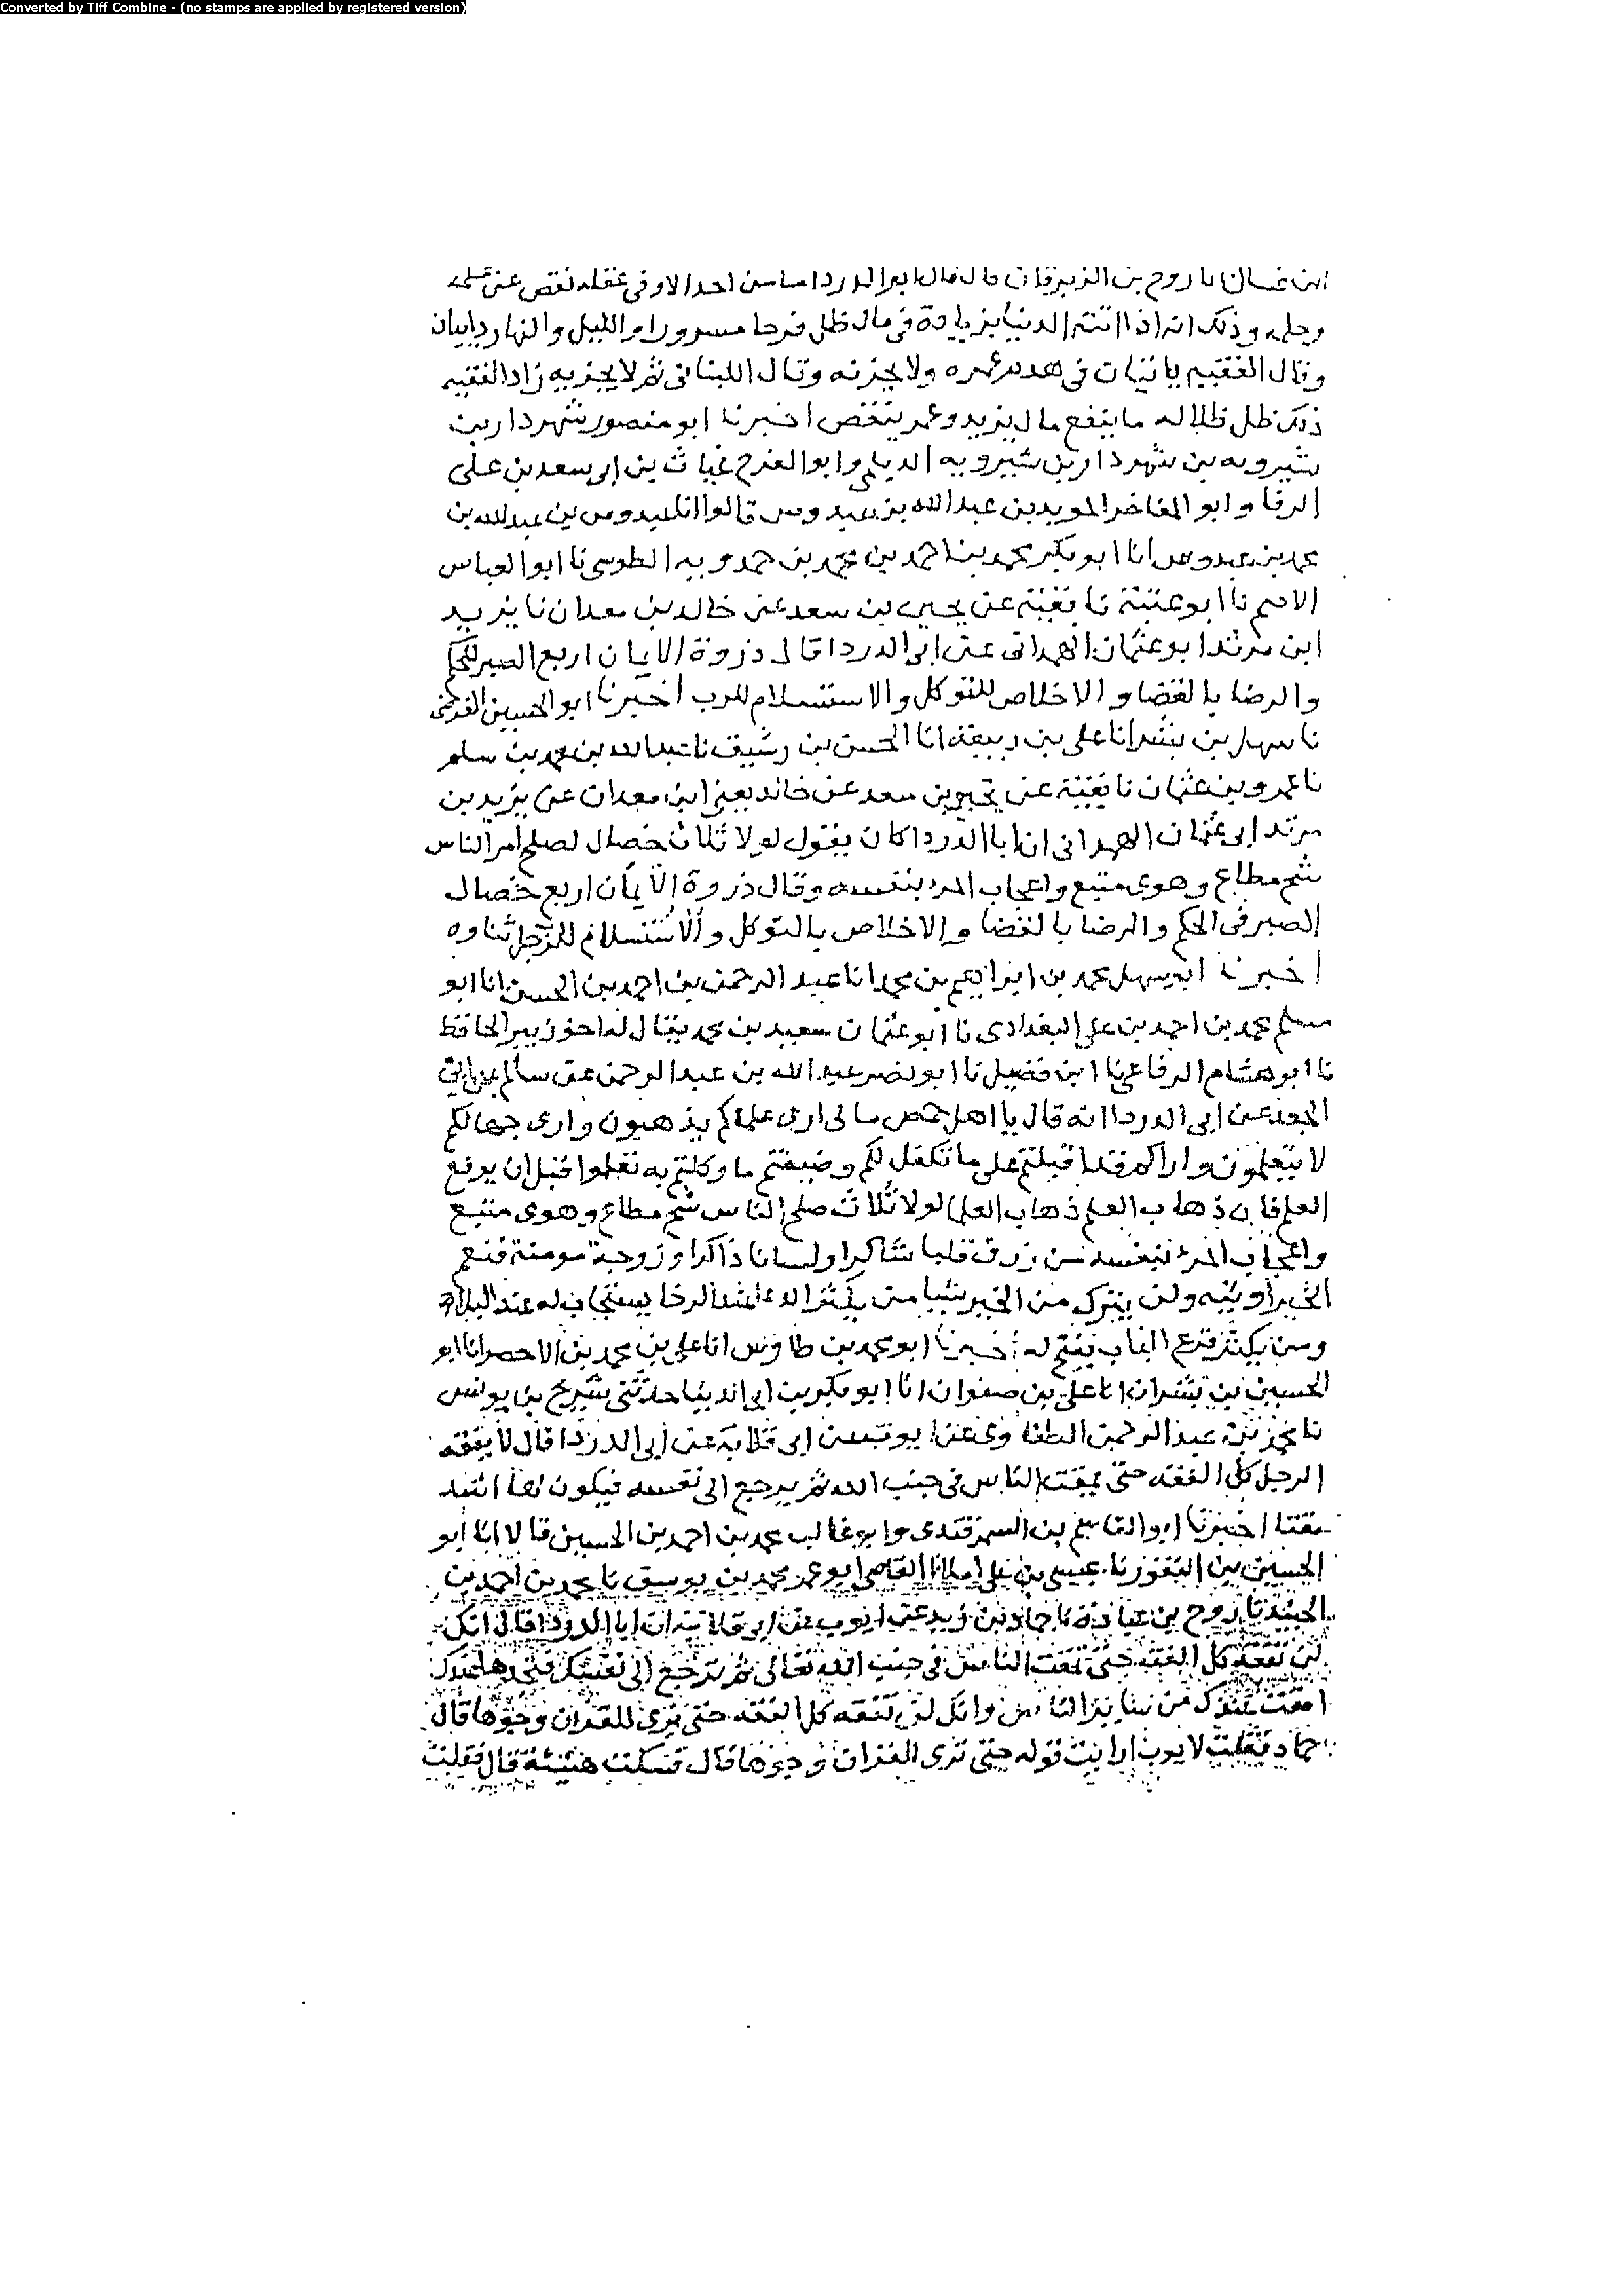 Converted by Tiff Combine - (no stamps are applied by registered version)
ابن غسان نا روح بن الزبرقان قال قال ابو الدرداء ما من احد الا وفى عقله نقص عن علمه
وحلمه وذلك انه اذا اتته الدنيا بزيادة فى مال ظل فرحا مسرورا والليل والنهار دايبان
وقال الفقيه يانيان فى هدم عمره ولا يحزنه وقال اللبنانى ثم لا يحزنه زاد الفقيه
ذلك ظل ظلاله ما ينفع مال يزيد وعمر ينقص اخبرنا ابو منصور شهردار بن
شيرويه بن شهردار بن شيرويه الديلمى وابو الفرح غياث بن ابى سعد بن على
الرفا وابو المفاخر المويد بن عبد الله بن عبدوس قالوا انا عبدوس بن عبد الله بن
محمد بن عبدوس انا ابو بكر محمد بن احمد بن محمد بن حمدويه الطوسى نا ابو العباس
الاصم نا ابو عتبة نا بقية عن يحيى بن سعد عن خالد بن معدان نا يزيد
ابن مرثد ابو عثمان الهمدانى عن ابى الدردا قال ذروة الايمان اربع الصبر للحكم
والرضا بالقضا والاخلاص للتوكل والاستسلام للرب اخبرنا ابو الحسين الفرضى
نا سهل بن بشر انا على بن ربيعة انا الحسن بن رشيق نا عبد الله بن محمد بن سلم
نا عمرو بن عثمان نا بقية عن بحير بن سعد عن خالد يعنى ابن معدان عن يزيد بن
مرثد ابى عثمان الهمدانى ان ابا الدردا كان يقول لولا ثلاث خصال لصلح امر الناس
شح مطاع وهوى متبع واعجاب المرء بنفسه وقال ذروة الايمان اربع خصال
الصبر فى الحكم والرضا بالقضا والاخلاص بالتوكل والاستسلام للرب جل ثناوه
اخبرنا ابو سهل محمد بن ابراهيم بن محمد انا عبد الرحمن بن احمد بن الحسن انا ابو
مسلم محمد بن احمد بن على البغدادى نا ابو عثمان سعيد بن محمد يقال له اخو زبير الحافظ
نا ابو هشام الرفاعى نا ابن فضيل نا ابو نصر عبد الله بن عبد الرحمن عن سالم بن ابى
الجعد عن ابى الدردا انه قال يا اهل حمص مالى ارى علماكم يذهبون وارى جهالكم
لا يتعلمون واراكم قد اقبلتم على ما تكفل لكم وضيعتم ما وكلتم به تعلموا قبل ان يرفع
العلم فان ذهاب العلم ذهاب العلما لولا ثلاث صلح الناس شح مطاع وهوى متبع
واعجاب المرء بنفسه من رزق قلبا شاكرا ولسانا ذاكرا وزوجة مومنة فنعم
الخير اوتيه ولن يترك من الخير شيا من يكثر الدعا عند الرخا يستجاب له عند البلا
ومن يكثر قرع الباب يفتح له اخبرنا ابو محمد بن طاوس انا على بن محمد بن الاخضر انا ابو
الحسين بن بشران انا على بن صفوان انا ابو بكر بن ابى الدنيا حدثنى شريح بن يونس
نا محمد بن عبد الرحمن الطفاوى عن ايوب عن ابى قلابة عن ابى الدردا قال لا يفقه
الرجل كل الفقه حتى يمقت الناس فى جنب الله ثم يرجع الى نفسه فيكون لها اشد
مقتا اخبرنا ابو القاسم بن السمرقندى وابو غالب محمد بن احمد بن الحسين قالا انا ابو
الحسين بن النقور نا عيسى بن على املا نا القاضى ابو عمر محمد بن يوسف نا محمد بن احمد بن
الجنيد نا روح بن عبادة نا حماد بن زيد عن ايوب عن ابى قلابة ان ابا الدردا قال انك
لن تفقه كل الفقه حتى تمقت الناس فى جنب الله تعالى ثم ترجع الى نفسك
امقت منك من ساير الناس وانك لن تفقه كل الفقه حتى ترى للقران وجوها قال
حماد فقلت لايوب ارايت قوله حتى ترى للقران وجوها قال فسكت هنيئة قال فقلت